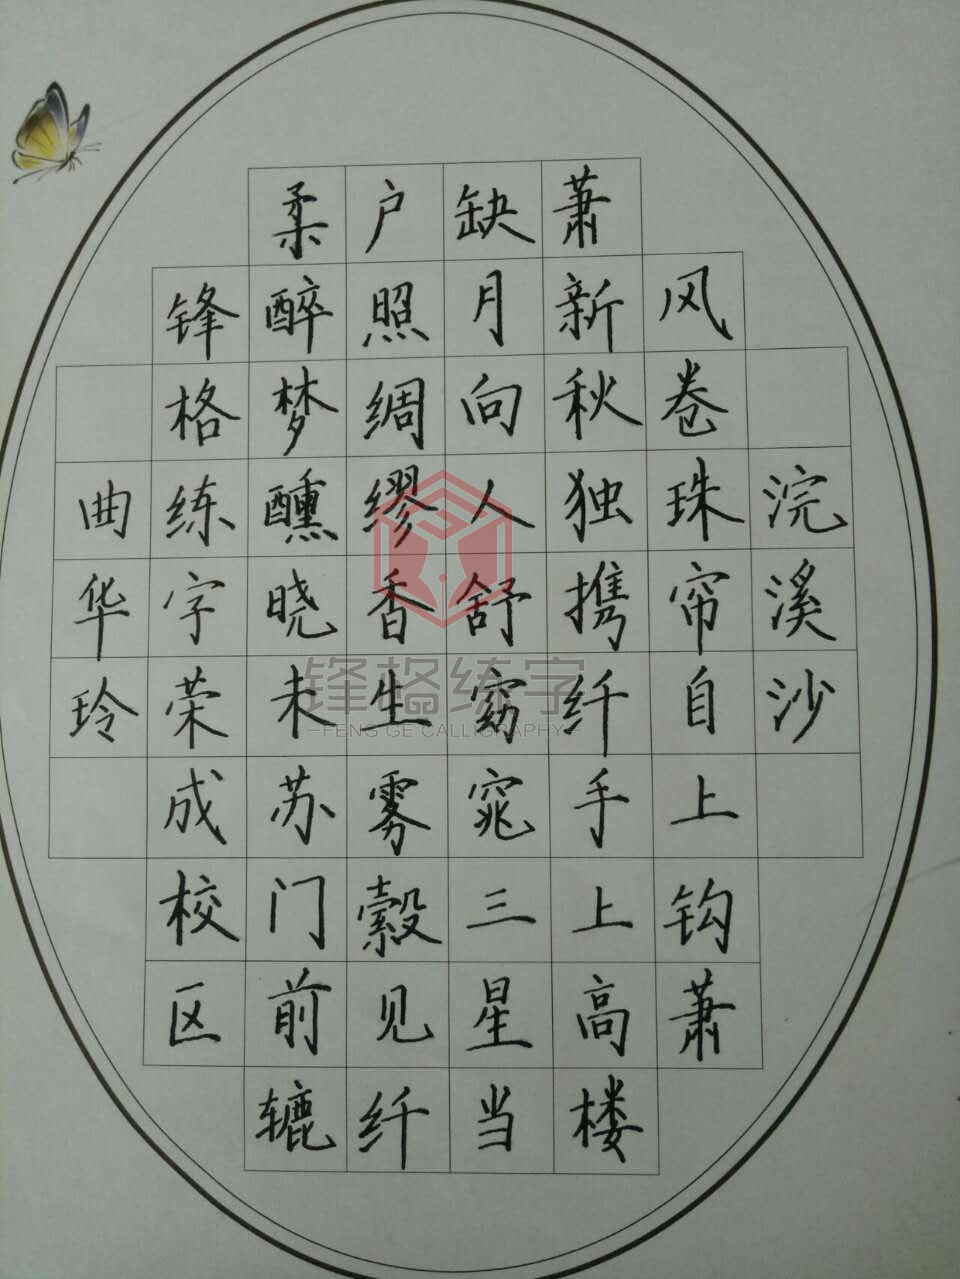 浣溪沙
风卷珠帘自上钩萧
萧新秋独携纤手上高楼
缺月向人舒窈窕三星当
户照绸缪香生雾縠见纤
柔醉梦醺晓未苏门前辘
锋格练字荣成校区
曲华玲
锋格练字
FENG GE CALLIGRAPHY